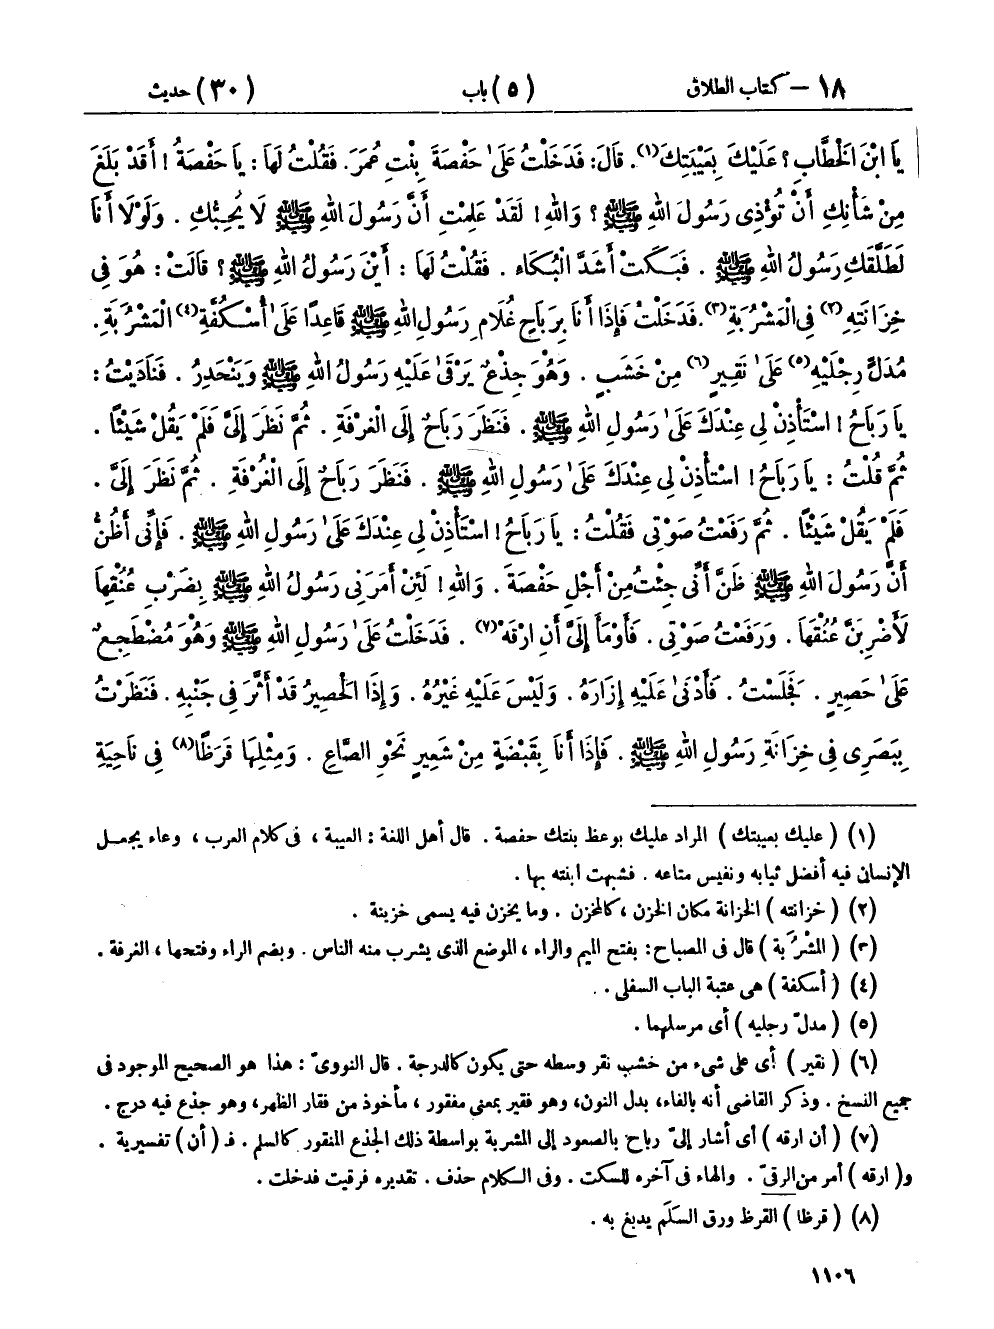 ١٨ – كتاب الطلاق (٥) باب (٣٠) حديث
يَا ابْنَ الْخَطَّابِ؟ عَلَيْكَ بِعَيْبَتِكَ(١). قَالَ: فَدَخَلْتُ عَلَىٰ حَفْصَةَ بِنْتِ عُمَرَ. فَقُلْتُ لَهَا: يَا حَفْصَةُ! أَقَدْ بَلَغَ
مِنْ شَأْنِكِ أَنْ تُؤْذِى رَسُولَ اللهِ ﷺ؟ وَاللهِ! لَقَدْ عَلِمْتِ أَنَّ رَسُولَ اللهِ ﷺ لَا يُحِبُّكِ. وَلَوْلَا أَنَا
لَطَلَّقَكِ رَسُولُ اللهِ ﷺ. فَبَكَتْ أَشَدَّ الْبُكَاءِ. فَقُلْتُ لَهَا: أَيْنَ رَسُولُ اللهِ ﷺ؟ قَالَتْ: هُوَ فِى
خِزَانَتِهِ(٢) فِى الْمَشْرُبَةِ(٣). فَدَخَلْتُ فَإِذَا أَنَا بِرَبَاحٍ غُلَامِ رَسُولِ اللهِ ﷺ قَاعِدًا عَلَىٰ أُسْكُفَّةِ(٤) الْمَشْرُبَةِ.
مُدَلٍّ رِجْلَيْهِ(٥) عَلَىٰ نَقِيرٍ(٦) مِنْ خَشَبٍ. وَهُوَ جِذْعٌ يَرْقَىٰ عَلَيْهِ رَسُولُ اللهِ ﷺ وَيَنْحَدِرُ. فَنَادَيْتُ:
يَا رَبَاحُ! اسْتَأْذِنْ لِى عِنْدَكَ عَلَىٰ رَسُولِ اللهِ ﷺ. فَنَظَرَ رَبَاحٌ إِلَى الْغُرْفَةِ. ثُمَّ نَظَرَ إِلَىَّ فَلَمْ يَقُلْ شَيْئًا.
ثُمَّ قُلْتُ: يَا رَبَاحُ! اسْتَأْذِنْ لِى عِنْدَكَ عَلَىٰ رَسُولِ اللهِ ﷺ. فَنَظَرَ رَبَاحٌ إِلَى الْغُرْفَةِ. ثُمَّ نَظَرَ إِلَىَّ.
فَلَمْ يَقُلْ شَيْئًا. ثُمَّ رَفَعْتُ صَوْتِى فَقُلْتُ: يَا رَبَاحُ! اسْتَأْذِنْ لِى عِنْدَكَ عَلَىٰ رَسُولِ اللهِ ﷺ. فَإِنِّى أَظُنُّ
أَنَّ رَسُولَ اللهِ ﷺ ظَنَّ أَنِّى جِئْتُ مِنْ أَجْلِ حَفْصَةَ. وَاللهِ! لَئِنْ أَمَرَنِى رَسُولُ اللهِ ﷺ بِضَرْبِ عُنُقِهَا
لَأَضْرِبَنَّ عُنُقَهَا. وَرَفَعْتُ صَوْتِى. فَأَوْمَأَ إِلَىَّ أَنِ ارْقَهْ(٧). فَدَخَلْتُ عَلَىٰ رَسُولِ اللهِ ﷺ وَهُوَ مُضْطَجِعٌ
عَلَىٰ حَصِيرٍ. فَجَلَسْتُ. فَأَدْنَىٰ عَلَيْهِ إِزَارَهُ. وَلَيْسَ عَلَيْهِ غَيْرُهُ. وَإِذَا الْحَصِيرُ قَدْ أَثَّرَ فِى جَنْبِهِ. فَنَظَرْتُ
بِبَصَرِى فِى خِزَانَةِ رَسُولِ اللهِ ﷺ. فَإِذَا أَنَا بِقَبْضَةٍ مِنْ شَعِيرٍ نَحْوِ الصَّاعِ. وَمِثْلِهَا قَرَظًا(٨) فِى نَاحِيَةِ
(١) (عليك بعيبتك) المراد عليك بوعظ بنتك حفصة. قال أهل اللغة: العيبة، فى كلام العرب، وعاء يجعل
الإنسان فيه أفضل ثيابه ونفيس متاعه. فشبهت ابنته بها.
(٢) (خزانته) الخزانة مكان الخزن، كالمخزن. وما يخزن فيه يسمى خزينة.
(٣) (المشرُبَة) قال فى المصباح: بفتح الميم والراء، الموضع الذى يشرب منه الناس. وبضم الراء وفتحها، الغرفة.
(٤) (أسكفة) هى عتبة الباب السفلى.
(٥) (مدلّ رجليه) أى مرسلهما.
(٦) (نقير) أى على شىء من خشب نقر وسطه حتى يكون كالدرجة. قال النووىّ: هذا هو الصحيح الموجود فى
جميع النسخ. وذكر القاضى أنه بالفاء، بدل النون، وهو فقير بمعنى مفقور، مأخوذ من فقار الظهر، وهو جذع فيه درج.
(٧) (أن ارقه) أى أشار إلىّ رباح بالصعود إلى المشربة بواسطة ذلك الجذع المنقور كالسلم. فـ (أن) تفسيرية.
و(ارقه) أمر من الرقىّ. والهاء فى آخره للسكت. وفى الكلام حذف. تقديره فرقيت فدخلت.
(٨) (قرظا) القرظ ورق السلَم يدبغ به.
١١٠٦